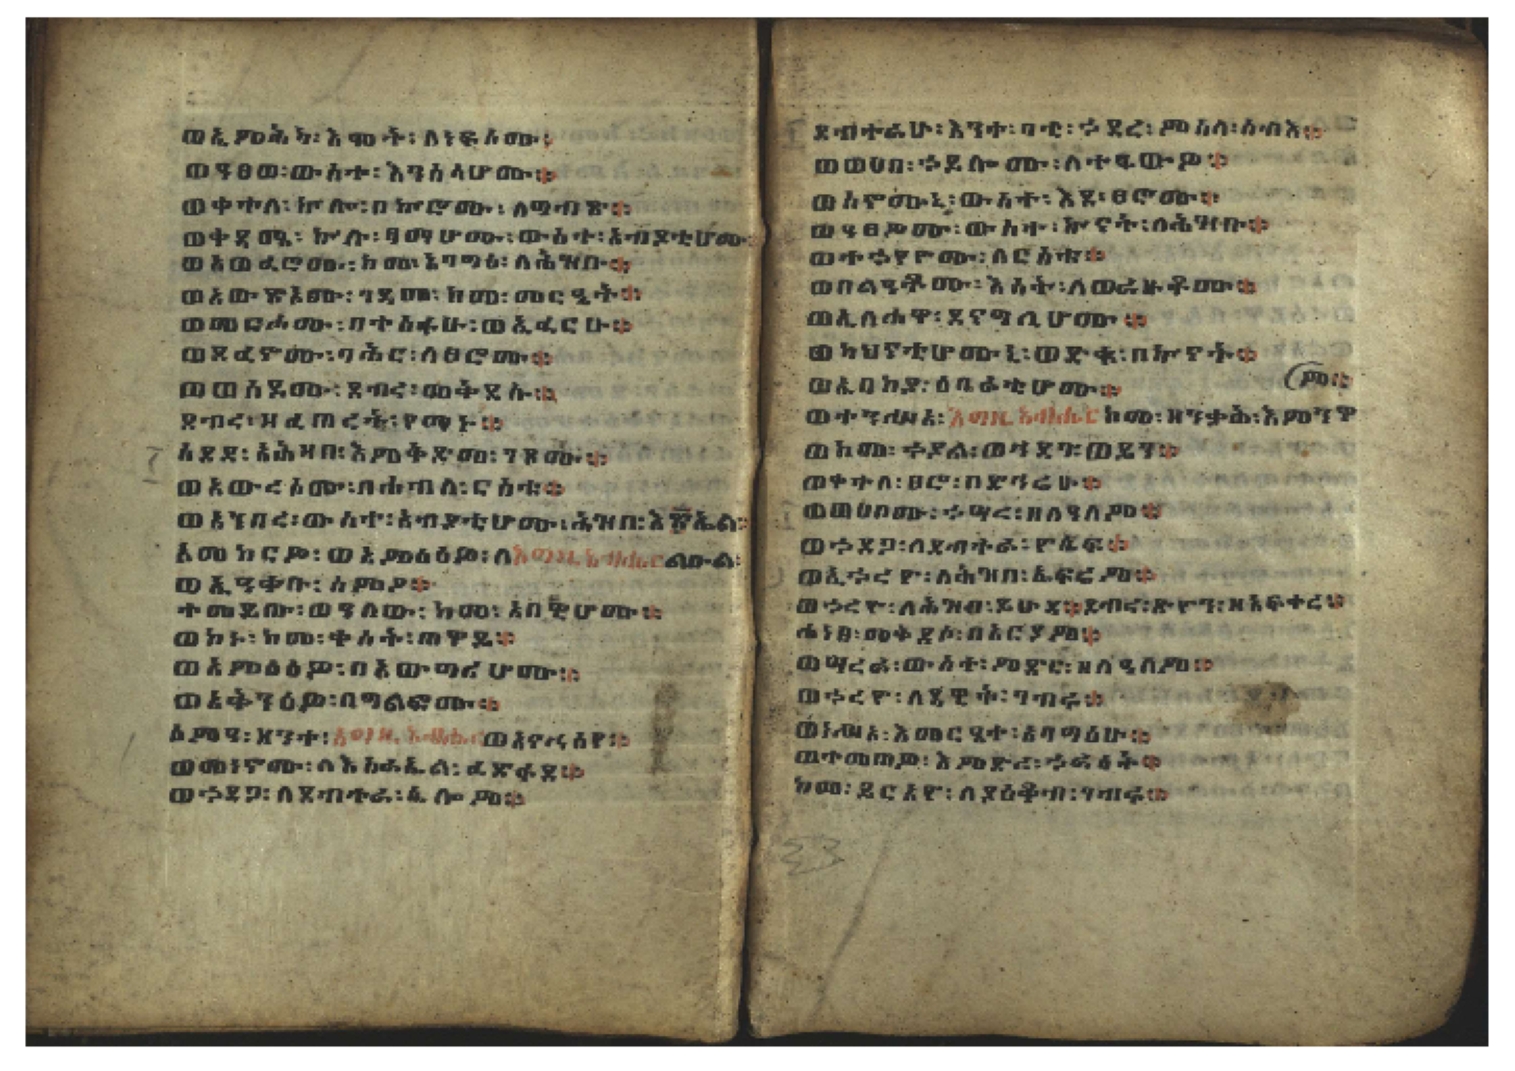 ወኢምሕካ፡ እሞት፡ ለነፍሶሙ፡
ወዓፀወ፡ ውስተ፡ እንስሳሆሙ።
ወቀተለ፡ ኵሎ፡ በኵሮሙ፡ ለግብጽ።
ወቀዳሜ፡ ኵሉ፡ ፃማሆሙ፡ ውስተ፡ አብያቲሆሙ።
ወአወፈሮሙ፡ ከመ፡ አባግዕ፡ ለሕዝቡ።
ወአውፅኦሙ፡ ገዳመ፡ ከመ፡ መርዔት።
ወመርሖሙ፡ በተስፋሁ፡ ወኢፈርሁ።
ወደፈኖሙ፡ ባሕር፡ ለፀሮሙ።
ወወሰዶሙ፡ ደብረ፡ መቅደሱ።
ደብረ፡ ዘፈጠረት፡ የማኑ።
ሰደደ፡ አሕዛበ፡ እምቅድመ፡ ገጾሙ።
ወአውረሶሙ፡ በሐብለ፡ ርስቱ።
ወአኅደረ፡ ውስተ፡ አብያቲሆሙ፡ ሕዝበ፡
አመከርዎ፡ ወአምዕዕዎ፡ ለእግዚአብሔር ልዑል፡
ወኢዓቀቡ፡ ስምዖ።
ተመይጡ፡ ወዓለው፡ ከመ፡ አበዊሆሙ።
ወኮኑ፡ ከመ፡ ቀስት፡ ጠዋይ።
ወአምዕዕዎ፡ በአውግሪሆሙ።
ወአቅንዕዎ፡ በግልፎሙ።
ሰምዓ፡ ዘንተ፡ እግዚአብሔር
ወመነኖሙ፡ ለእስራኤል፡ ፈድፋደ።
ወኀደጋ፡ ለደብተራ፡ ሴሎም።
ደብተራሁ፡ እንተ፡ ባቲ፡ ኀደረ፡ ምስለ፡ ሰብእ።
ወወሀበ፡ ኀይሎሙ፡ ለተፄውዎ።
ወስኖሙኒ፡ ውስተ፡ እደ፡ ፀሮሙ።
ወዓፀዎሙ፡ ውስተ፡ ኵናት፡ ለሕዝቡ።
ወተኀየዮሙ፡ ለርስቱ።
ወበልዓቶሙ፡ እሳት፡ ለወራዙቶሙ።
ወኢላሐዋ፡ ደናግሊሆሙ።
ወካህናቲሆሙኒ፡ ወድቁ፡ በኵናት።
ወኢበከያ፡ ዕቤራቲሆሙ።
ወተንሥአ፡ እግዚአብሔር ከመ፡ ዘንቃሕ፡ እምንዋም።
ወከመ፡ ኀያል፡ ወኃደገ፡ ወይን።
ወቀተለ፡ ፀሮ፡ በድኅሬሁ።
ወወሀቦሙ፡ ኀሣረ፡ ዘለዓለም።
ወኀደጋ፡ ለደብተራ፡ ዮሴፍ።
ወኢኀረዮ፡ ለሕዝበ፡ ኤፍሬም።
ወኀረዮ፡ ለሕዝበ፡ ይሁዳ። ደብረ፡ ጽዮን፡ ዘአፍቀረ።
ሐነፀ፡ መቅደሶ፡ በአርያም።
ወሣረራ፡ ውስተ፡ ምድር፡ ዘለዓለም።
ወኀረዮ፡ ለዳዊት፡ ገብሩ።
ወነሥኦ፡ እመርዔተ፡ አባግዒሁ።
ወተመጠዎ፡ እምድኅረ፡
ከመ፡ ይርአዮ፡ ለያዕቆብ፡ ገብሩ።